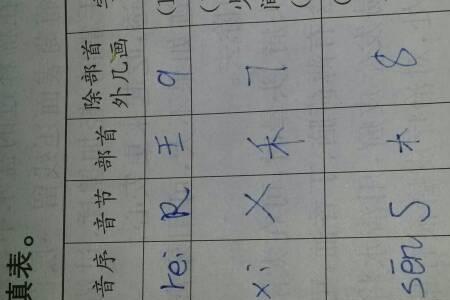 表。
音序 音节 部首 除部首
外几画
rei R 王 9
xi X 禾 7
sēn S 木 8